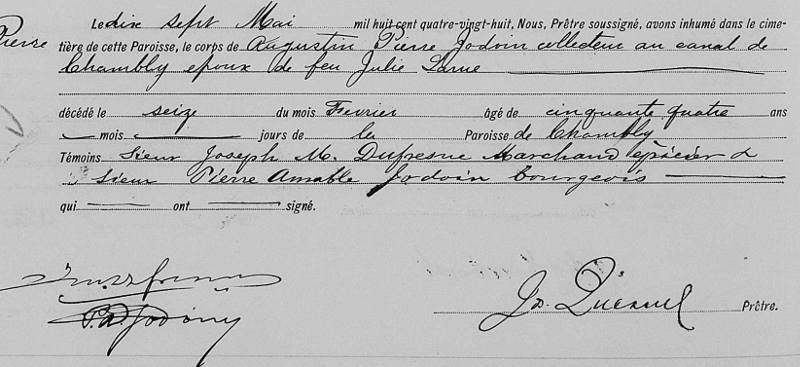 Le dix sept Mai mil huit cent quatre-vingt-huit, Nous, Prêtre soussigné, avons inhumé dans le cime-
Pierre tière de cette Paroisse, le corps de Augustin Pierre Jodoin collecteur au canal de
Chambly epoux de feu Julie Larue
décédé le seize du mois Fevrier âgé de cinquante quatre ans
mois jours de la Paroisse de Chambly
Témoins Sieur Joseph M. Dufresne Marchand épicier &
Sieur Pierre Amable Jodoin bourgeois
qui ont signé.
P. A. Jodoin
Prêtre.